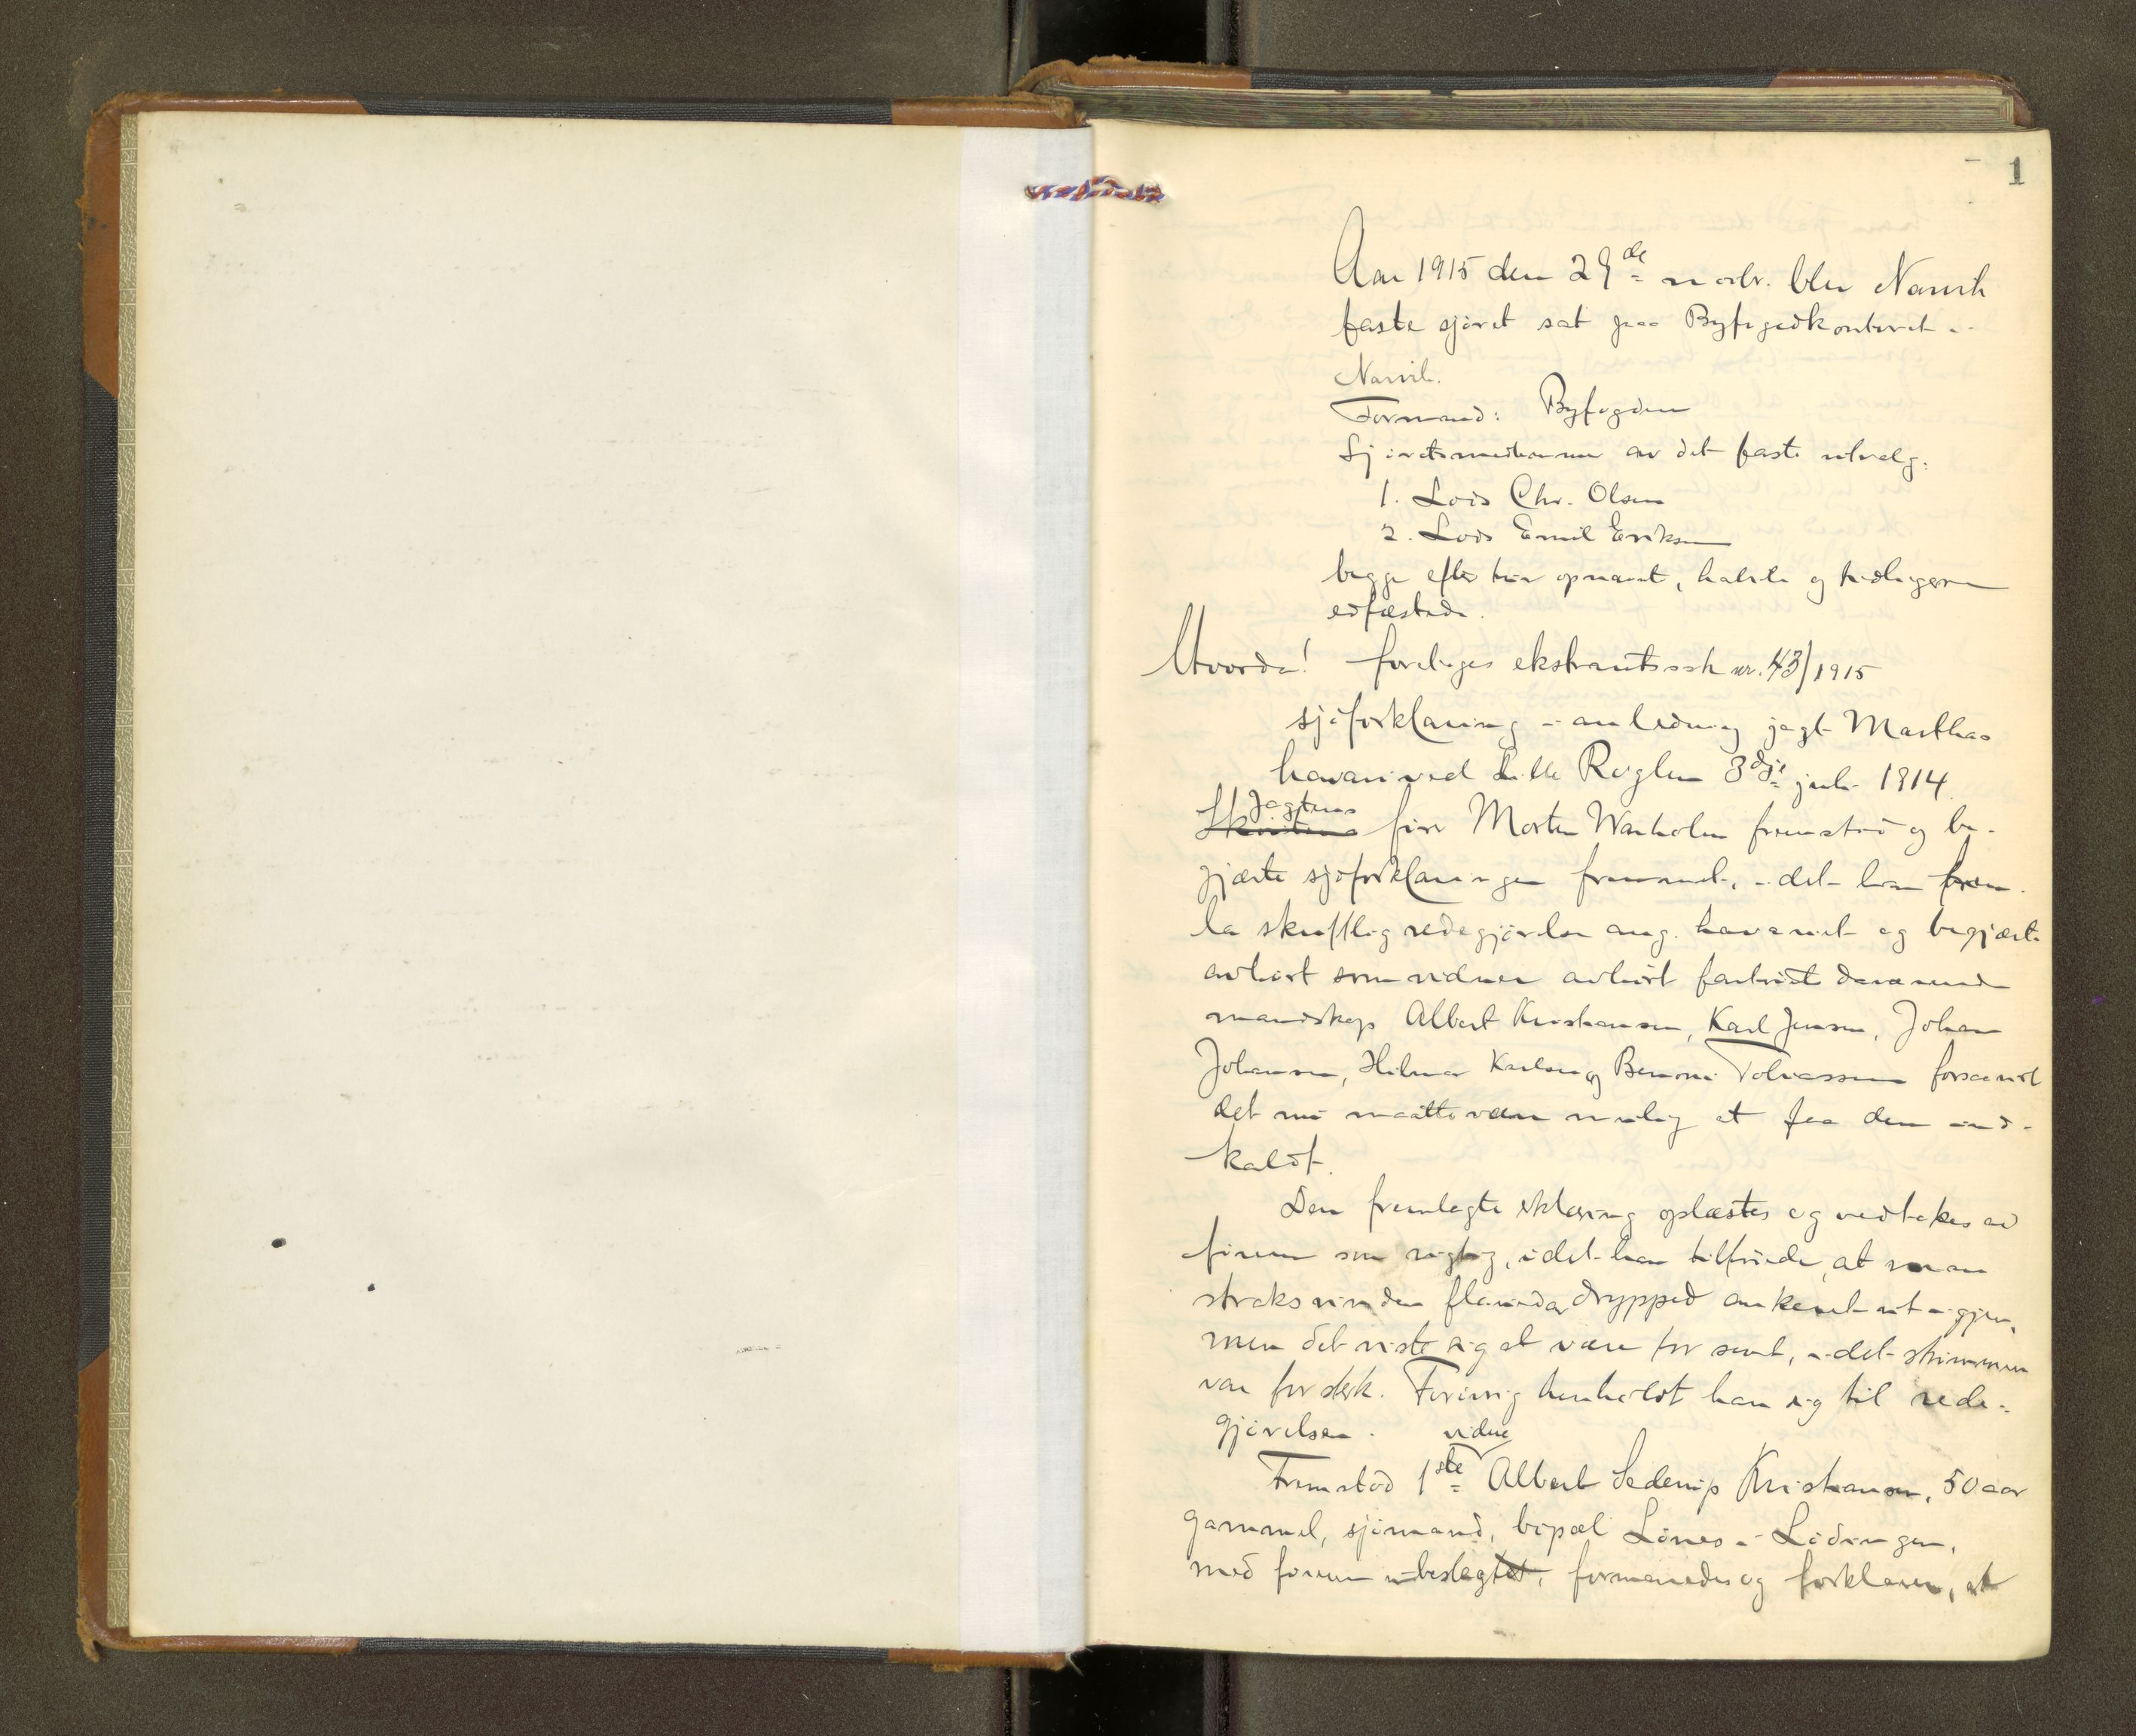 1
Aar 1915 den 29de novbr. blev Narvik
faste sjøret sat paa Byfogedkontoret i
Narvik.
Formand: Byfogden
Sjøretsmedlemmer av det faste utvalg:
1. Lods Chr. Olsen
2. Lods Emil Eriksen
begge efter tur opnævnt, habile og tidligere
edfæstede.
Hvorda! forelages ekstraretssak nr. 43/1915
sjøforklaring i anledning jagt Marthas
havari ved Lille Røglen 3dje juli 1914.
Jagtens
Skøitens fører Morten Warholm fremstod og be-
gjærte sjøforklaringen fremmet, idet han frem
la skriftlig redegjørelse ang. havariet og begjærte
avhørt som vidner avhørt fartøiets daværende
mandskap Albert Kristiansen, Karl Jensen, Johan
Johansen, Hilmar Karlsen og Benoni Tobiassen forsaavidt
det nu maatte være mulig at faa dem ind-
kaldt.
Den fremlagte erklæring oplæstes og vedtokes av
føreren som rigtig, idet han tilføiede, at man
straks vinden flauet av dropped ankeret ut igjen,
men det viste sig at være for sent, idet strømmen
var for sterk. Forøvrig henholdt han sig til rede-
gjørelsen.
vidne
Fremstod 1ste Albert Sederup Kristiansen, 50 aar
gammel, sjømand, bopæl Lønes i Lødingen,
med føreren ubeslegtet, formanedes og forklarer, at